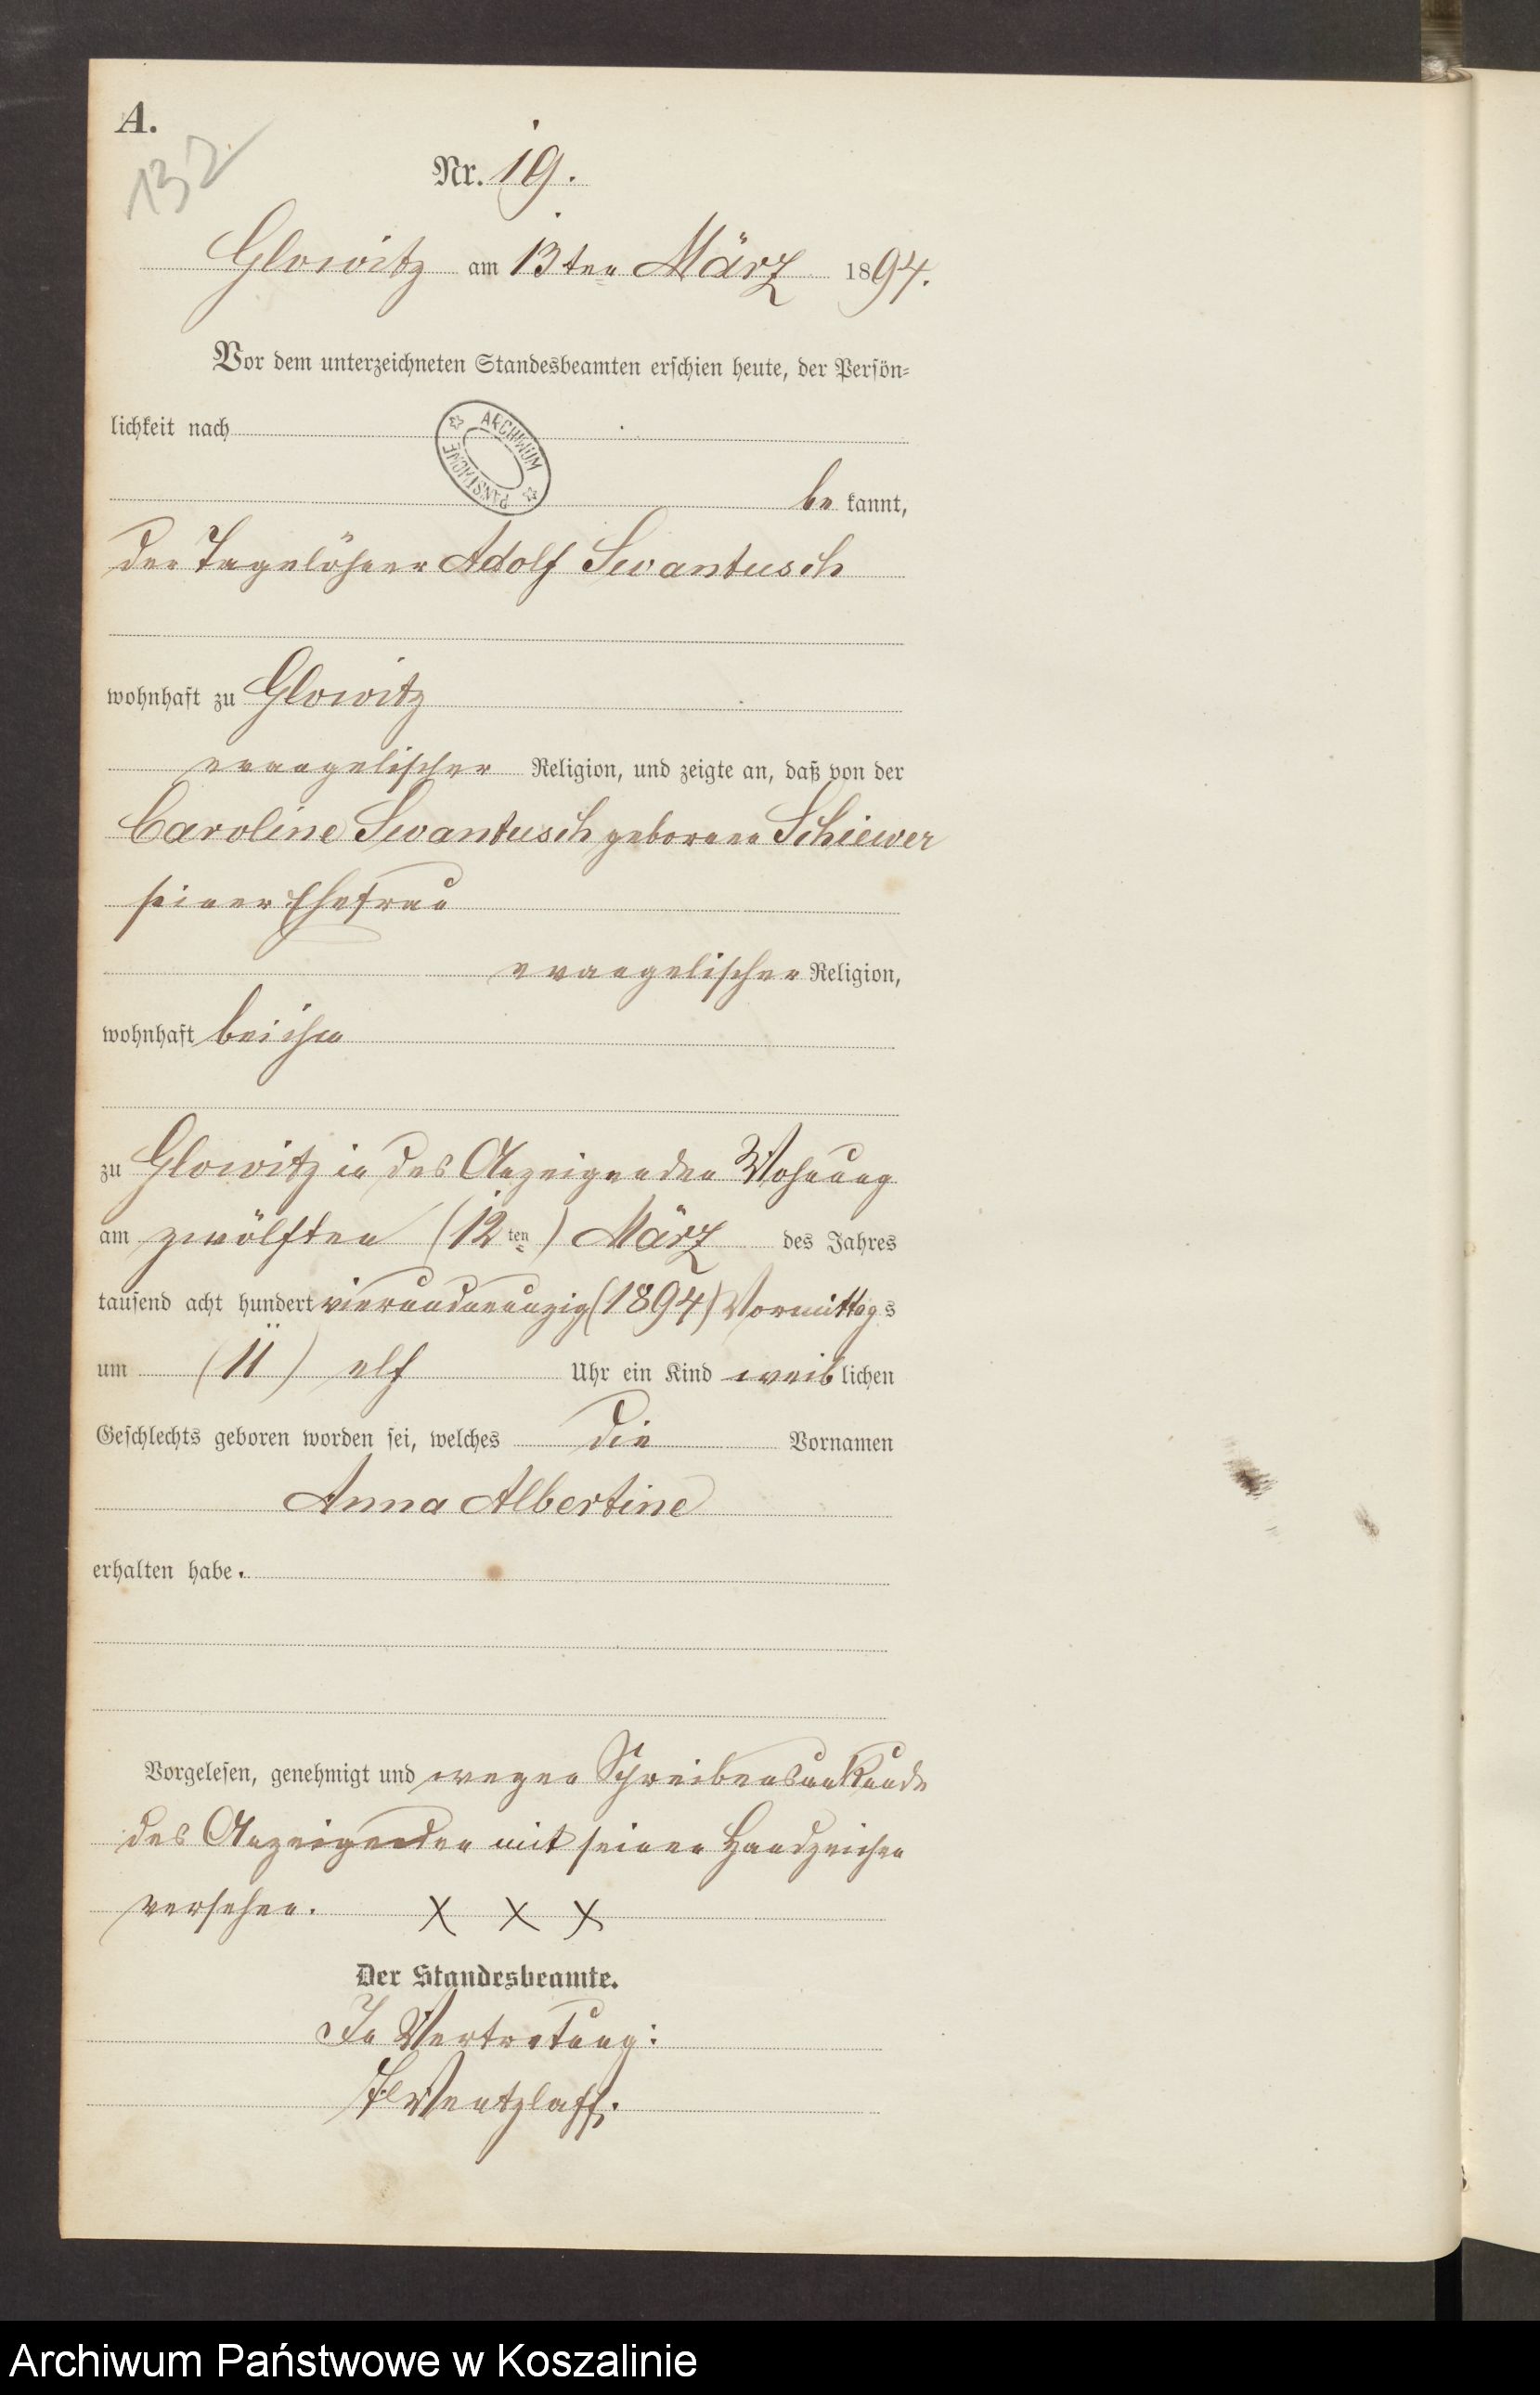 A.
132
Nr. 19.
Glowitz am 13ten März 1894.
Vor dem unterzeichneten Standesbeamten erschien heute, der Persön-
lichkeit nach
ARCHIWUM PAŃSTWOWE
be kannt,
der Tagelöhner Adolf Swantusch
wohnhaft zu Glowitz
evangelischer Religion, und zeigte an, daß von der
Caroline Swantusch geborenen Schiewer
seiner Ehefrau
evangelischer Religion,
wohnhaft bei ihm
zu Glowitz in des Anzeigenden Wohnung
am zwölften (12ten) März des Jahres
tausend acht hundert vierundneunzig (1894) Vormittags
um (11) elf Uhr ein Kind weiblichen
Geschlechts geboren worden sei, welches die Vornamen
Anna Albertine
erhalten habe.
Vorgelesen, genehmigt und wegen Schreibensunkunde
des Anzeigenden mit seinen Handzeichen
versehen. X X X
Der Standesbeamte.
In Vertretung:
Wentzlaff.
Archiwum Państwowe w Koszalinie